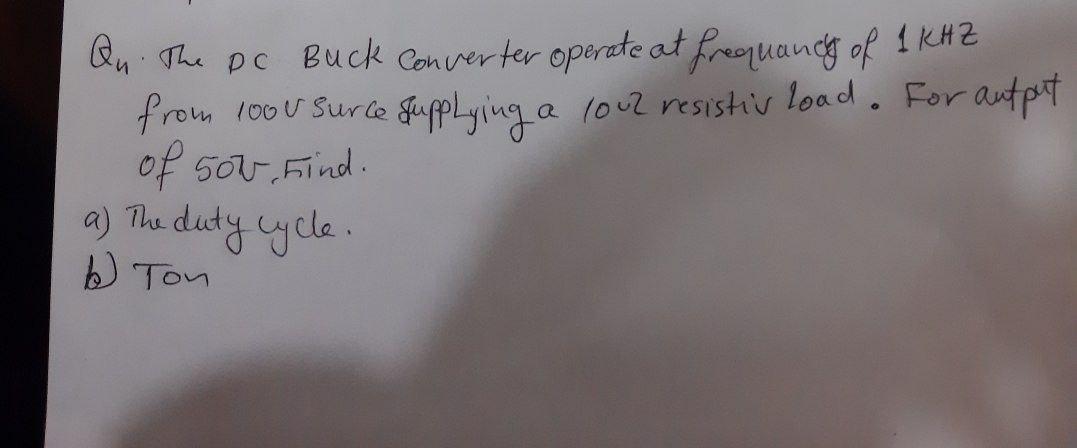 Qn. The DC Buck Converter operate at frequancy of 1 KHZ
from 100V Surce Supplying a 10Ω resistiv load. For autput
of 50V, Find.
a) The duty cycle.
b) Ton